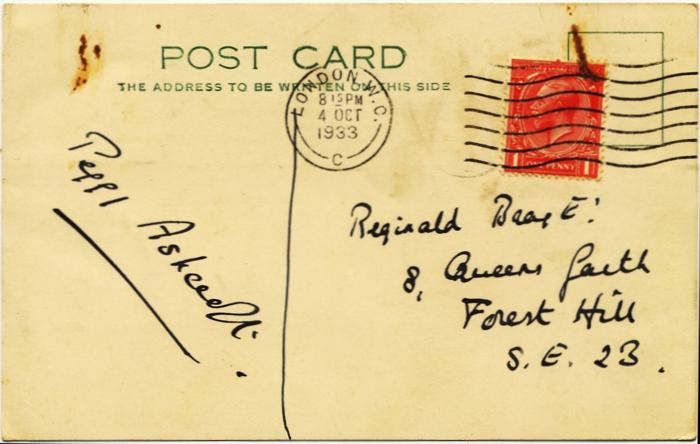 POST CARD
THE ADDRESS TO BE WRITTEN ON THIS SIDE
LONDON W.C.
8 15 PM
4 OCT
1933
C
ONE PENNY
Peggy Ashcroft.
Reginald
8, Queens Garth
Forest Hill
S.E. 23.